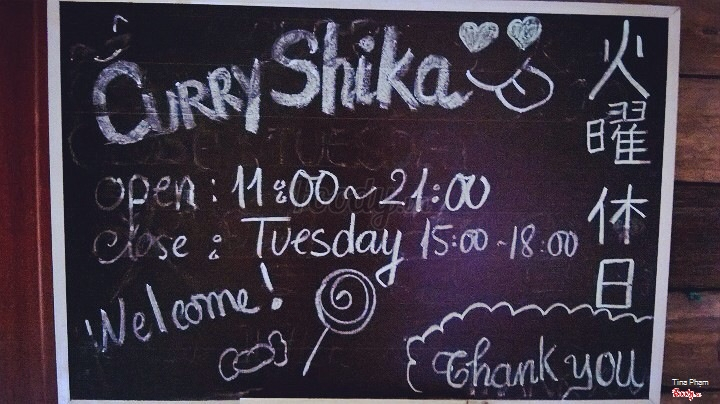 Curry Shika
open : 11:00~21:00
close : Tuesday 15:00~18:00
Welcome!
Thank you
火曜休日
Tina Pham
Foody.vn